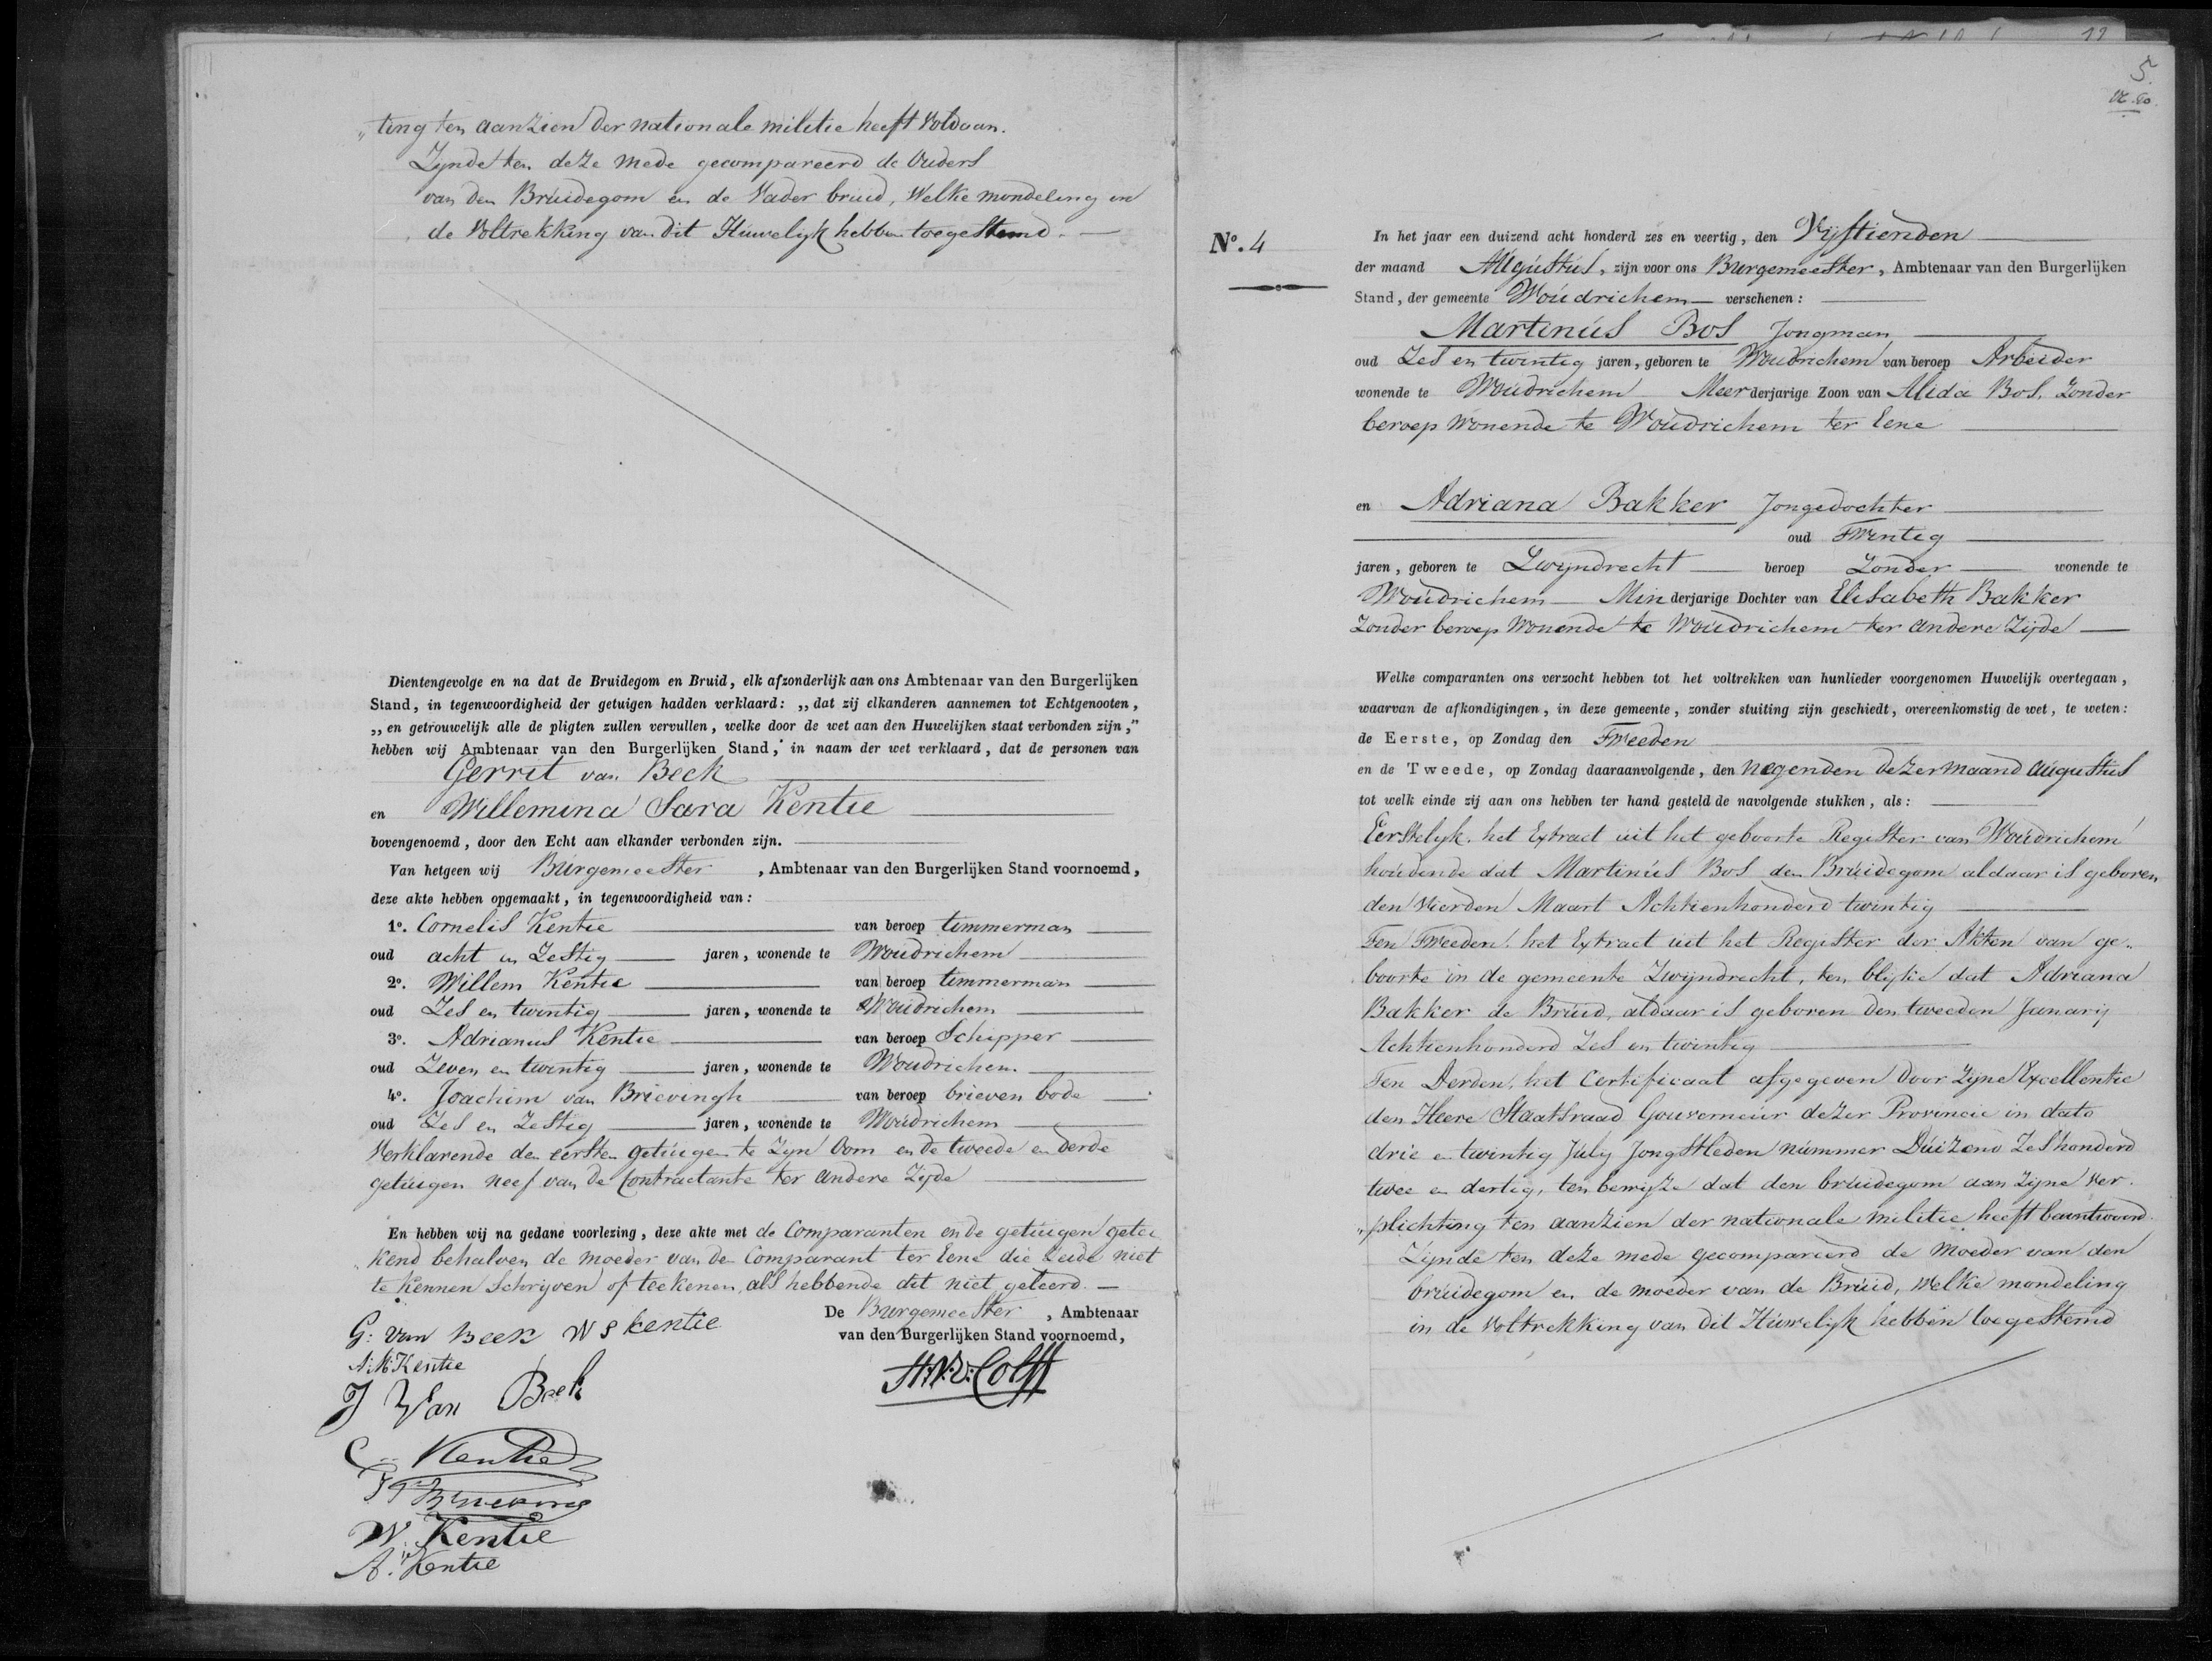 „ting ten aanzien der nationale militie heeft voldaan.
Zynde ten deze mede gecompareerd de Ouders
van den Bruidegom en de Vader bruid, Welke mondeling in
de Voltrekking van dit Huwelyk hebben toegestemd. —
Dientengevolge en na dat de Bruidegom en Bruid, elk afzonderlijk aan ons Ambtenaar van den Burgerlijken
Stand, in tegenwoordigheid der getuigen hadden verklaard: „dat zij elkanderen aannemen tot Echtgenooten,
„en getrouwelijk alle de pligten zullen vervullen, welke door de wet aan den Huwelijken staat verbonden zijn,”
hebben wij Ambtenaar van den Burgerlijken Stand, in naam der wet verklaard, dat de personen van
Gerrit van Beek
en Willemina Sara Kentie
bovengenoemd, door den Echt aan elkander verbonden zijn.
Van hetgeen wij Burgemeester, Ambtenaar van den Burgerlijken Stand voornoemd,
deze akte hebben opgemaakt, in tegenwoordigheid van:
1o. Cornelis Kentie van beroep timmerman
oud acht en Zestig jaren, wonende te Woudrichem
2o. Willem Kentie van beroep timmerman
oud Zes en twintig jaren, wonende te Woudrichem
3o. Adrianus Kentie van beroep Schipper
oud Zeven en twintig jaren, wonende te Woudrichem
4o. Joachim van Brievingh van beroep brieven bode
oud Zes en Zestig jaren, wonende te Woudrichem
Verklarende den eersten getuigen te Zyn Oom en de tweede en derde
getuigen neef van de Contractante ter andere Zyde
En hebben wij na gedane voorlezing, deze akte met de Comparanten en de getuigen getee
„kend behalven de moeder van den Comparant ter Eene die Zeide niet
te kennen Schryven of teekenen, als hebbende dit niet geleerd. —
De Burgemeester, Ambtenaar
van den Burgerlijken Stand voornoemd,
G: van Beek W S Kentie
A: M: Kentie
J Van Beek
H.N.V. Colff
C Kentie
W. Kentie
A: Kentie
5.
No. 4
In het jaar een duizend acht honderd zes en veertig, den Vijftienden
der maand Augustus, zijn voor ons Burgemeester, Ambtenaar van den Burgerlijken
Stand, der gemeente Woudrichem verschenen:
Martinus Bos Jongman
oud Zes en twintig jaren, geboren te Woudrichem van beroep Arbeider
wonende te Woudrichem Meerderjarige Zoon van Alida Bos, Zonder
beroep Wonende te Woudrichem ter Eene
en Adriana Bakker Jongedochter
oud Twintig
jaren, geboren te Zwyndrecht beroep Zonder wonende te
Woudrichem Minderjarige Dochter van Elisabeth Bakker
Zonder beroep Wonende te Woudrichem ter andere Zijde
Welke comparanten ons verzocht hebben tot het voltrekken van hunlieder voorgenomen Huwelijk overtegaan,
waarvan de afkondigingen, in deze gemeente, zonder stuiting zijn geschiedt, overeenkomstig de wet, te weten:
de Eerste, op Zondag den Tweeden
en de Tweede, op Zondag daaraanvolgende, den negenden dezer maand Augustus
tot welk einde zij aan ons hebben ter hand gesteld de navolgende stukken, als:
Eerstelyk. het Extract uit het geboorte Register van Woudrichem
houdende dat Martinus Bos den Bruidegom aldaar is geboren
den Vierden Maart Achtienhonderd twintig
Ten Tweeden. het Extract uit het Register der Akten van ge„
boorte in de gemeente Zwyndrecht, ten blijke dat Adriana
Bakker de Bruid, aldaar is geboren den tweeden Janarij
Achtienhonderd Zes en twintig
Ten Derden, het Certificaat afgegeven door Zyne Excellentie
den Heere Staatsraad Gouverneur dezer Provincie in dato
drie en twintig July Jongstleden nummer Duizend Zeshonderd
twee en dertig, ten bewyze dat den bruidegom aan Zyne Ver„
„plichting ten aanzien der nationale militie heeft beantwoord.
Zynde ten deze mede gecompareerd de Moeder van den
bruidegom en de moeder van de Bruid, welke mondeling
in de Voltrekking van dit Huwelyk hebben toegestemd